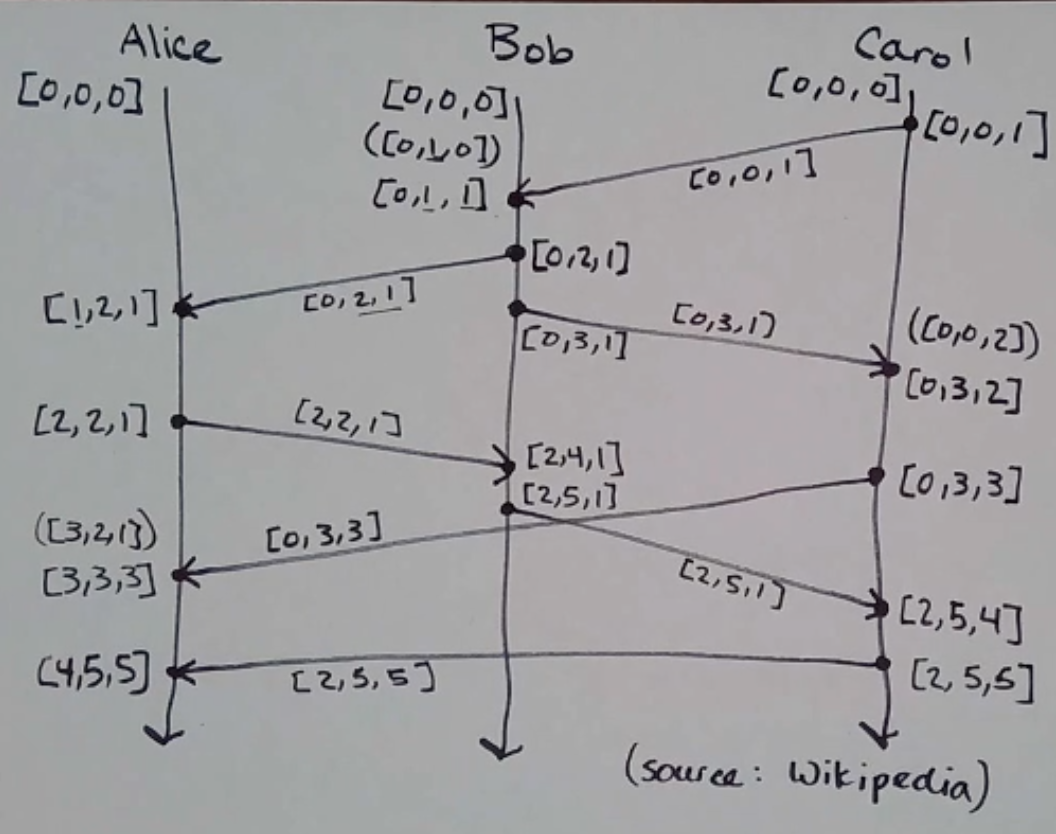 Alice Bob Carol
[0,0,0] [0,0,0] [0,0,0]
[0,0,1]
([0,1,0])
[0,0,1]
[0,1,1]
[0,2,1]
[0,2,1]
[1,2,1]
[0,3,1]
[0,3,1)
([0,0,2])
[0,3,2]
[2,2,1]
[2,2,1]
[2,4,1]
[0,3,3]
[2,5,1]
([3,2,1])
[0,3,3]
[3,3,3]
[2,5,1]
[2,5,4]
(4,5,5]
[2,5,5]
[2,5,5]
(source: Wikipedia)